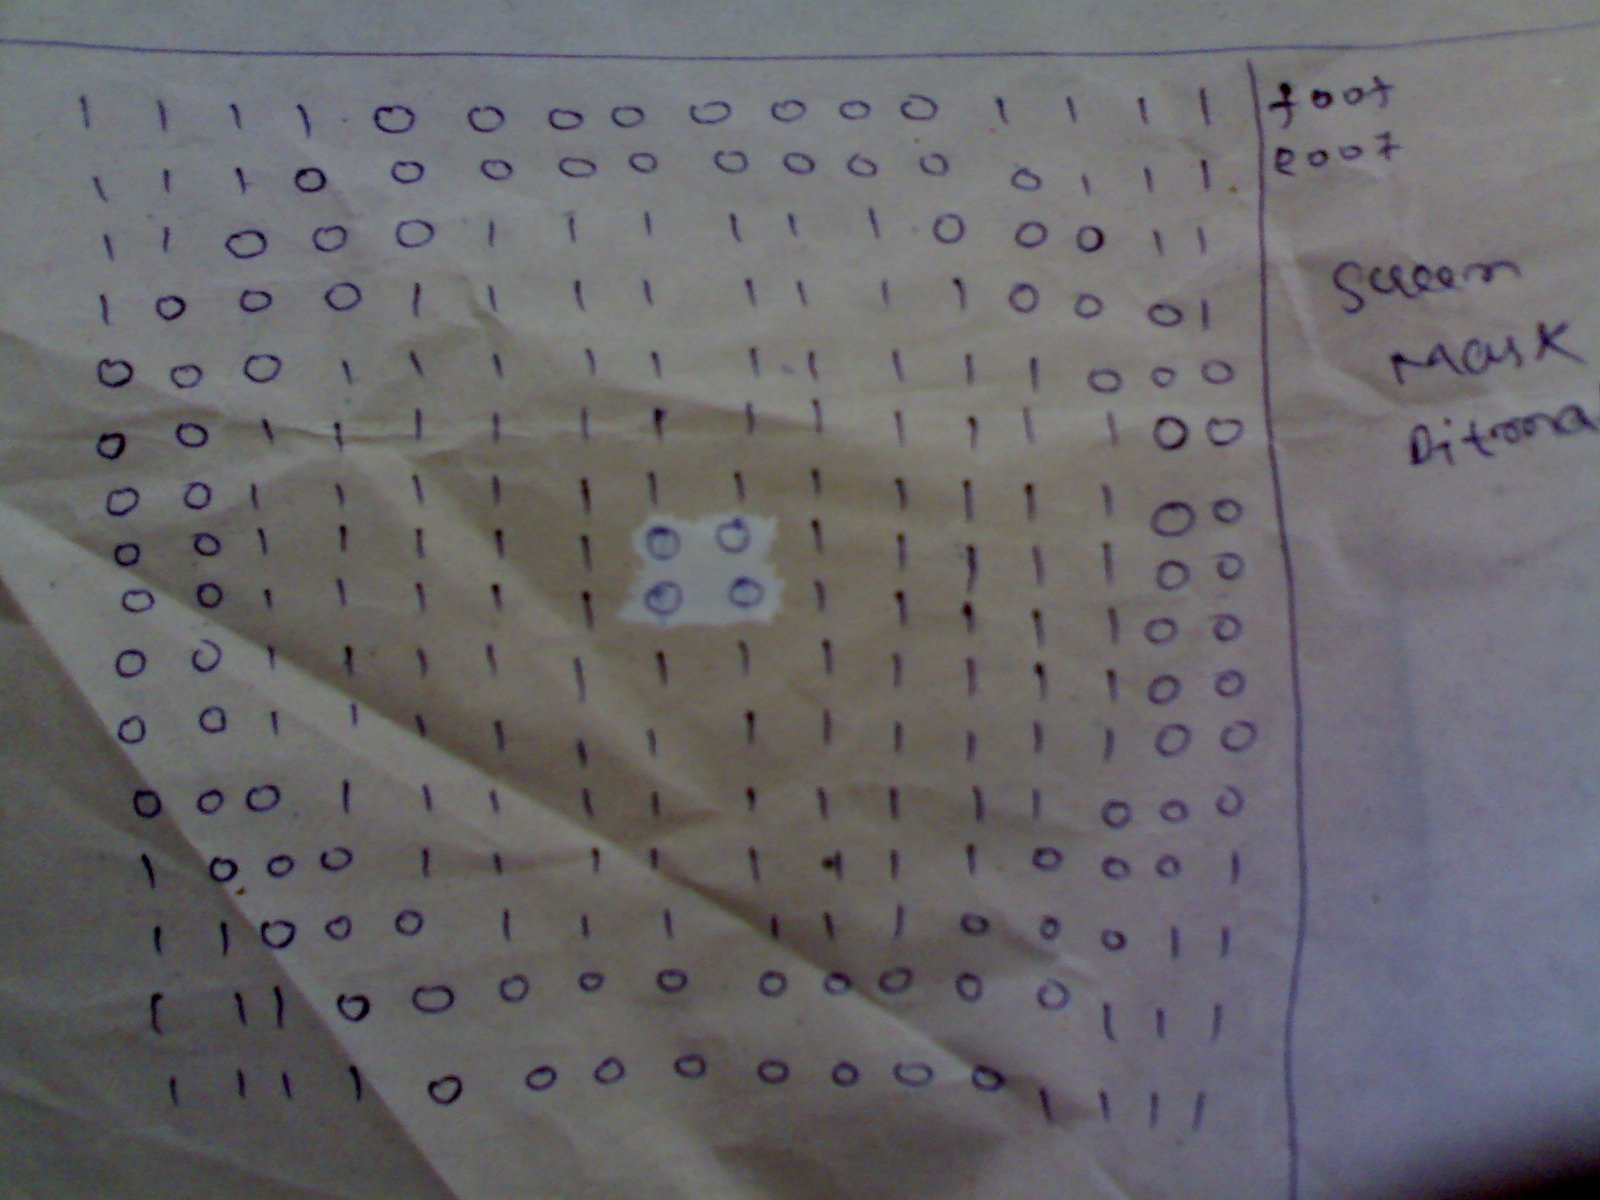 1 1 1 1 0 0 0 0 0 0 0 0 1 1 1 1 f00f
1 1 1 0 0 0 0 0 0 0 0 0 0 1 1 1 e007
1 1 0 0 0 1 1 1 1 1 1 0 0 0 1 1
1 0 0 0 1 1 1 1 1 1 1 1 0 0 0 1
0 0 0 1 1 1 1 1 1 1 1 1 1 0 0 0
0 0 1 1 1 1 1 1 1 1 1 1 1 1 0 0
0 0 1 1 1 1 1 1 1 1 1 1 1 1 0 0
0 0 1 1 1 1 1 0 0 1 1 1 1 1 0 0
0 0 1 1 1 1 1 0 0 1 1 1 1 1 0 0
0 0 1 1 1 1 1 1 1 1 1 1 1 1 0 0
0 0 1 1 1 1 1 1 1 1 1 1 1 1 0 0
0 0 0 1 1 1 1 1 1 1 1 1 1 0 0 0
1 0 0 0 1 1 1 1 1 1 1 1 0 0 0 1
1 1 0 0 0 1 1 1 1 1 1 0 0 0 1 1
1 1 1 0 0 0 0 0 0 0 0 0 0 1 1 1
1 1 1 1 0 0 0 0 0 0 0 0 1 1 1 1
Screen
Mask